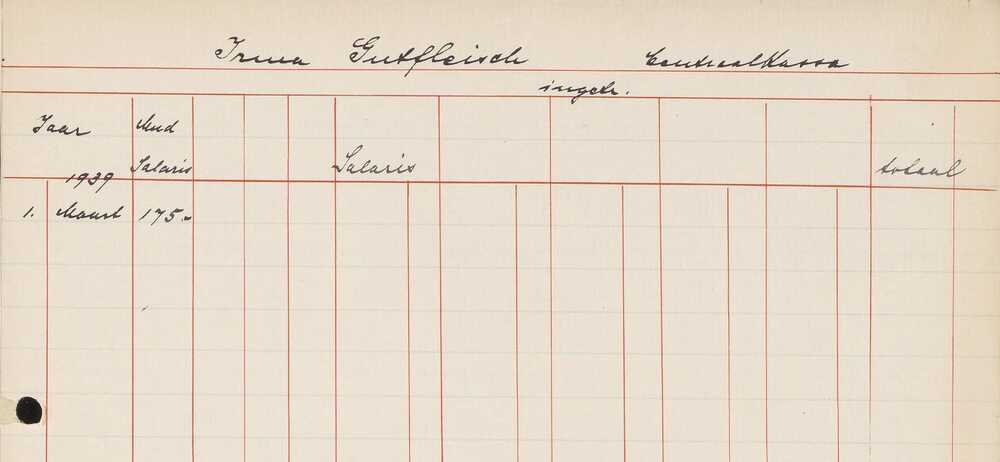 Irma Gutfleisch Centraalkassa
ingetr.
Jaar Mnd
1939 Salaris Salaris totaal
1. Maart 175.-